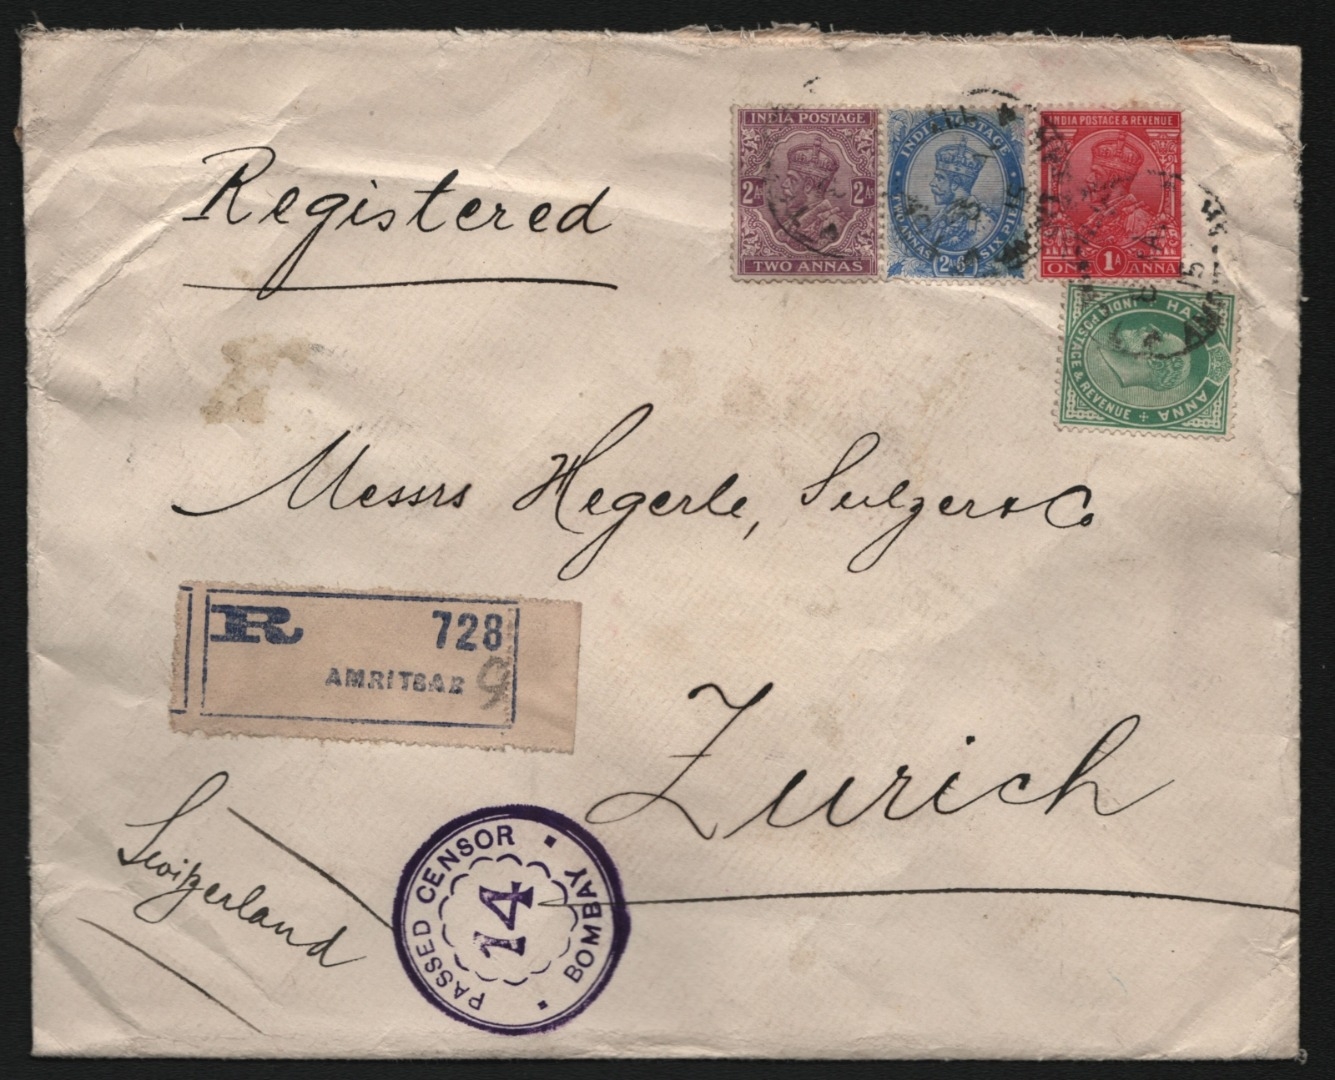 Registered
INDIA POSTAGE
2A 2A
TWO ANNAS
INDIA POSTAGE
TWO ANNAS 2A6P SIX PIES
INDIA POSTAGE & REVENUE
ONE 1A ANNA
INDIA POSTAGE & REVENUE + HALF ANNA +
Messrs Hegerle, Sulzer & Co
R 728
AMRITSAR 9
Zurich
Switzerland
PASSED CENSOR
14
BOMBAY